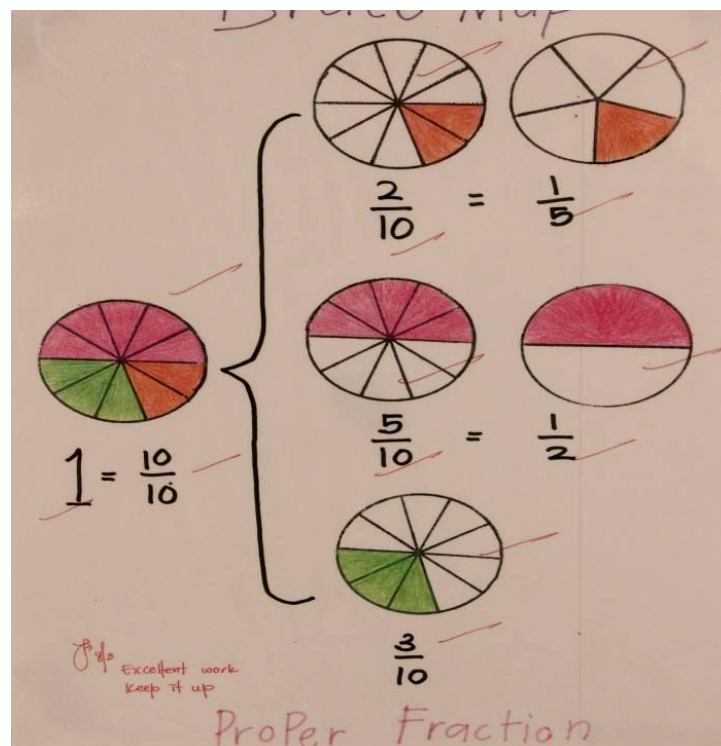 Map
2/10 = 1/5
1 = 10/10
5/10 = 1/2
3/10
Excellent work
Keep it up
Proper Fraction